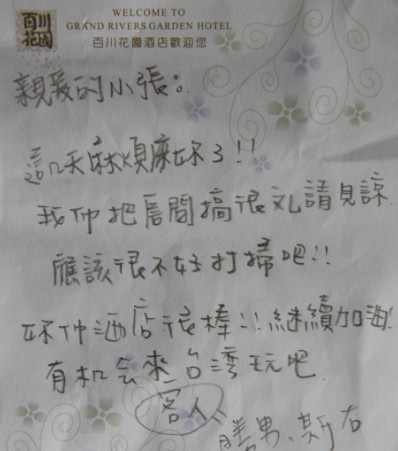 百川
花園
WELCOME TO
GRAND RIVERS GARDEN HOTEL
百川花園酒店歡迎您
親爱的小張:
這几天麻煩麻妳了!!
我们把房間搞很乱請見諒.
應該很不好打掃吧!!
妳们酒店很棒!!繼續加油!
有机会來台灣玩吧.
客人、
勝男、斯右